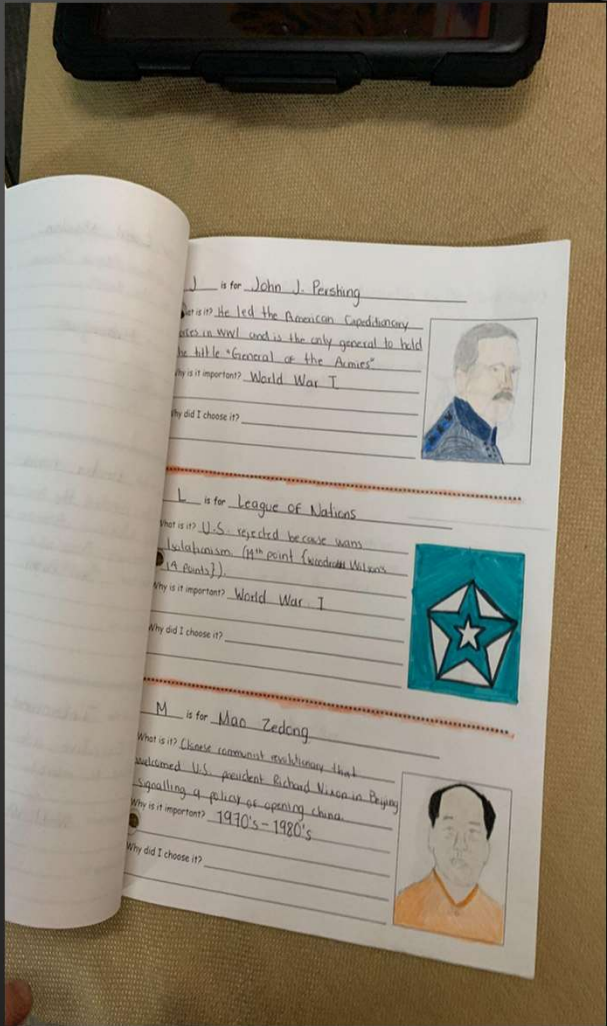 J is for John J. Pershing
at is it? He led the American Expeditionary
rces in WWI and is the only general to hold
he title "General of the Armies"
hy is it important? World War I
hy did I choose it?
L is for League of Nations
What is it? U.S. rejected because wans
Isolationism. (14th point {Woodrow Wilson's
14 Points}).
Why is it important? World War I
Why did I choose it?
M is for Mao Zedong
What is it? Chinese communist revolutionary that
welcomed U.S. president Richard Nixon in Beijing
signalling a policy of opening china.
Why is it important? 1970's - 1980's
Why did I choose it?